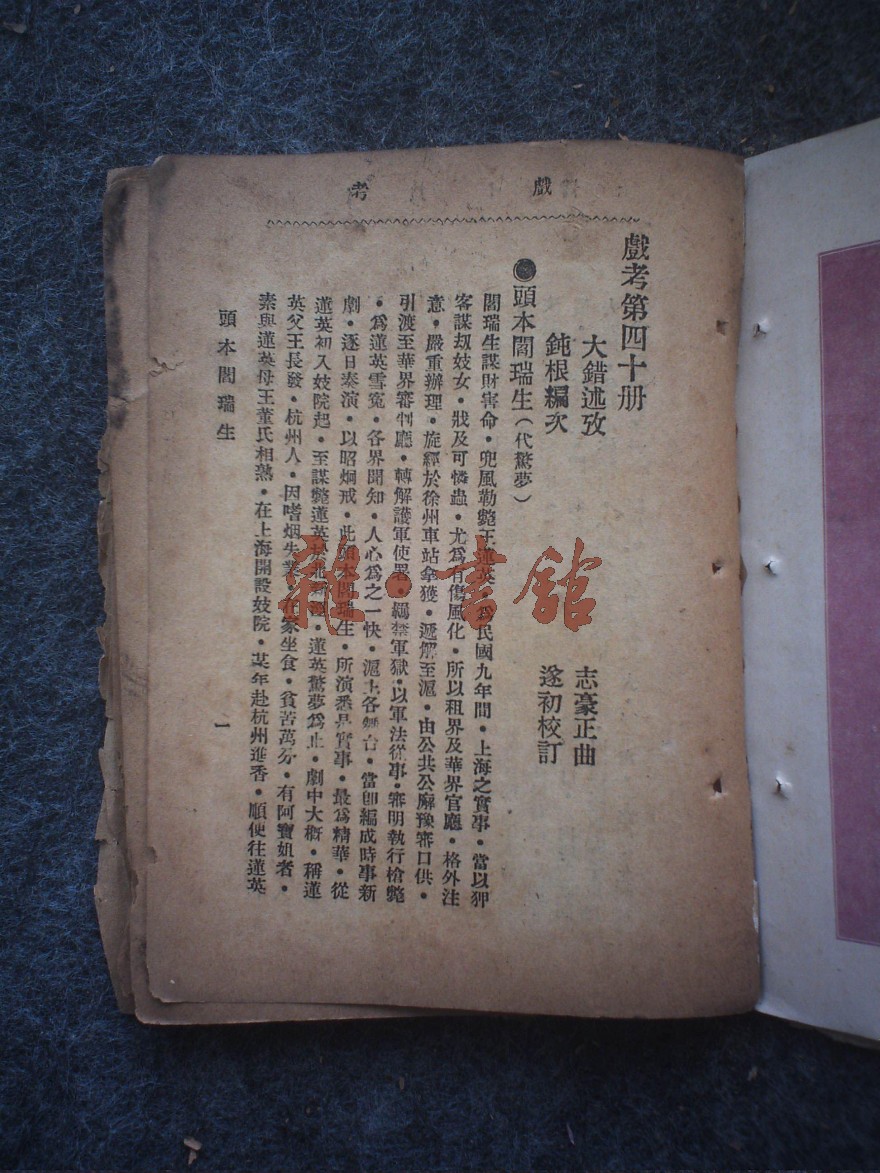 戲考
戲考第四十册
大錯述攷　志豪正曲
鈍根編次　遂初校訂
●頭本閻瑞生（代驚夢）
閻瑞生謀財害命・兜風勒斃王蓮英・爲民國九年間・上海之實事・當以狎
客謀刼妓女・狀及可憐蟲・尤爲有傷風化・所以租界及華界官廳・格外注
意・嚴重辦理・旋經於徐州車站拿獲・遞解至滬・由公共公廨豫審口供・
引渡至華界審判廳・轉解護軍使署・羈禁軍獄・以軍法從事・審明執行槍斃
・爲蓮英雪寃・各界聞知・人心爲之一快・滬上各舞台・當卽編成時事新
劇・逐日奏演・以昭炯戒・此頭本閻瑞生・所演悉是實事・最爲精華・從
蓮英初入妓院起・至謀斃蓮英於北・蓮英驚夢爲止・劇中大概・稱蓮
英父王長發・杭州人・因嗜烟失業・在家坐食・貧苦萬分・有阿寶姐者・
素與蓮英母王董氏相熟・在上海開設妓院・某年赴杭州進香・順便往蓮英
頭本閻瑞生
一
雜・書館